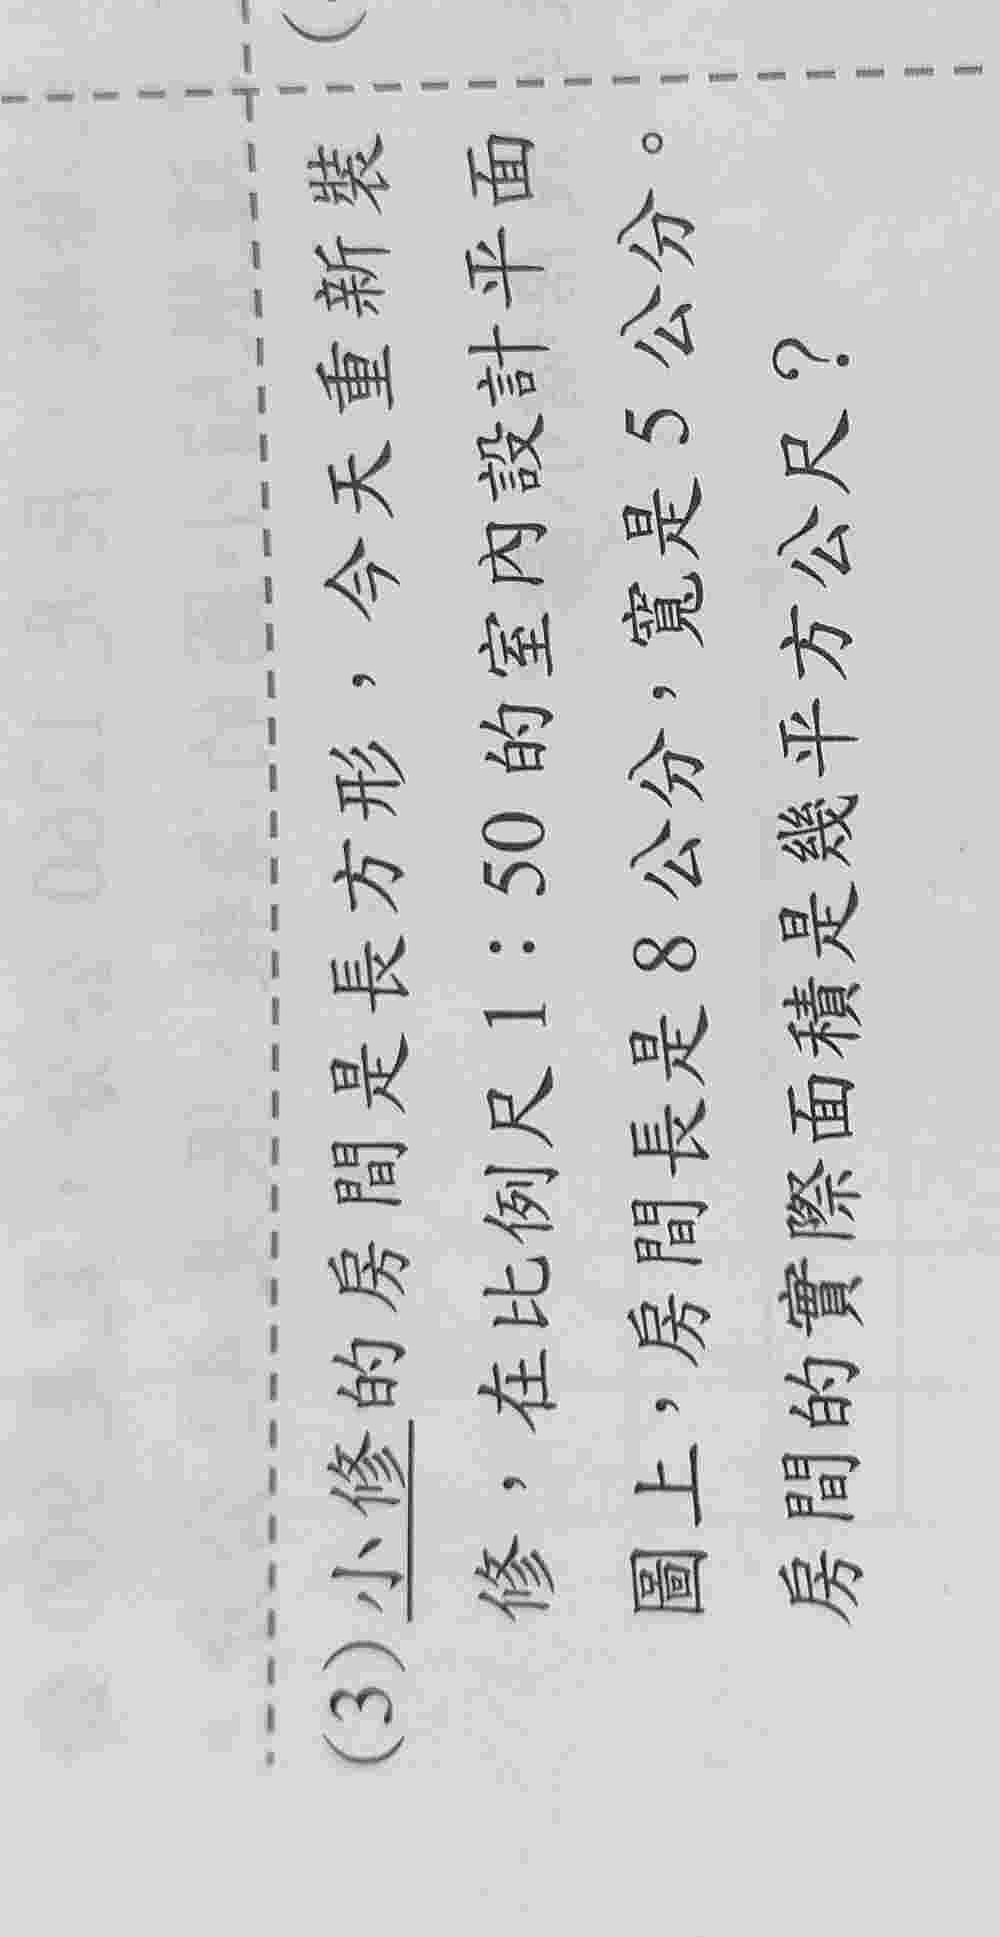 (3)小修的房間是長方形，今天重新裝
修，在比例尺1：50的室內設計平面
圖上，房間長是8公分，寬是5公分。
房間的實際面積是幾平方公尺？